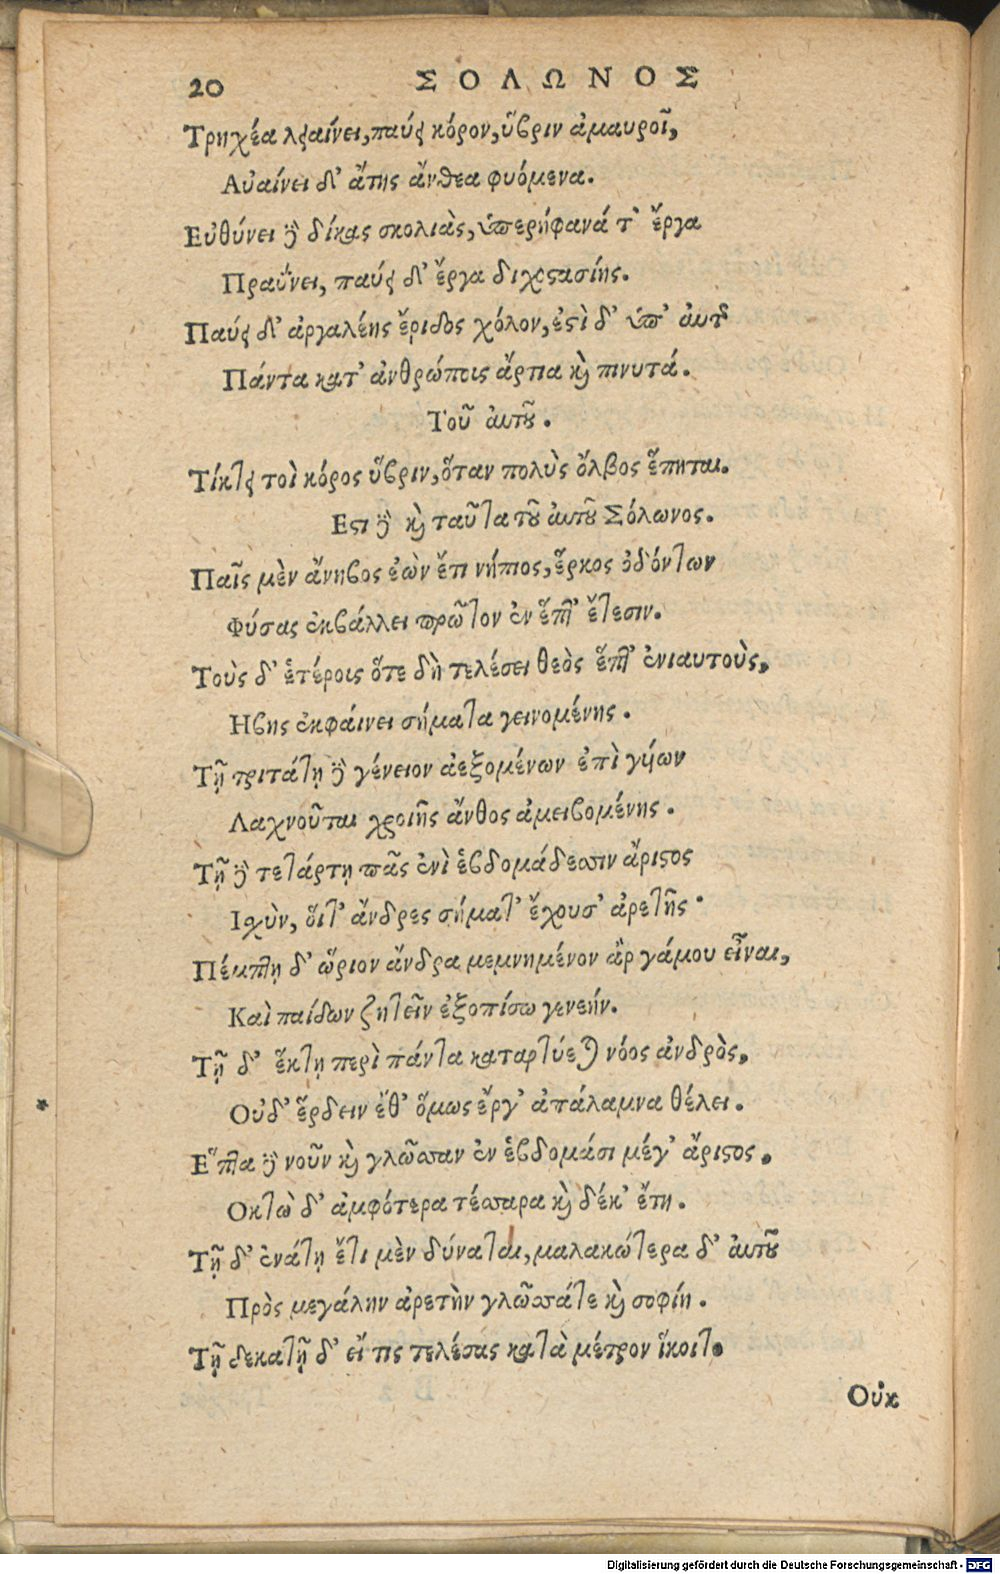 20 ΣΟΛΩΝΟΣ
Τρηχέα λειαίνει, παύει κόρον, ὕβριν ἀμαυροῖ,
Αὐαίνει δ' ἄτης ἄνθεα φυόμενα.
Εὐθύνει δὲ δίκας σκολιὰς, ὑπερήφανά τ' ἔργα
Πραΰνει, παύει δ' ἔργα διχοστασίης.
Παύει δ' ἀργαλέης ἔριδος χόλον, ἐστὶ δ' ὑπ' αὐτοῦ
Πάντα κατ' ἀνθρώποις ἄρτια καὶ πινυτά.
Τοῦ αὐτοῦ.
Τίκτει τοὶ κόρος ὕβριν, ὅταν πολὺς ὄλβος ἕπηται.
Εστι δὲ καὶ ταῦτα τοῦ αὐτοῦ Σόλωνος.
Παῖς μὲν ἄνηβος ἐὼν ἔτι νήπιος, ἕρκος ὀδόντων
Φύσας ἐκβάλλει πρῶτον ἐν ἕπτ' ἔτεσιν.
Τοὺς δ' ἑτέροις ὅτε δὴ τελέσει θεὸς ἕπτ' ἐνιαυτοὺς,
Ηβης ἐκφάινει σήματα γεινομένης.
Τῇ τριτάτῃ δὲ γένειον ἀεξομένων ἐπὶ γυίων
Λαχνοῦται χροιῆς ἄνθος ἀμειβομένης.
Τῇ δὲ τετάρτῃ πᾶς ἐνὶ ἑβδομάδεσσιν ἄριστος
Ισχὺν, οἵτ' ἄνδρες σήματ' ἔχουσ' ἀρετῆς·
Πέμπτῃ δ' ὥριον ἄνδρα μεμνημένον ἂρ γάμου εἶναι,
Καὶ παίδων ζητεῖν ἐξοπίσω γενεήν.
Τῇ δ' ἕκτῃ περὶ πάντα καταρτύεται νόος ἀνδρὸς,
Οὐδ' ἕρδειν ἔθ' ὅμως ἔργ' ἀπάλαμνα θέλει.
Ἑπτα δὲ νοῦν καὶ γλῶσσαν ἐν ἑβδομάσι μέγ' ἄριστος,
Οκτὼ δ' ἀμφότερα τέσσαρα καὶ δέκ' ἔτη.
Τῇ δ' ἐνάτῃ ἔτι μὲν δύναται, μαλακώτερα δ' αὐτοῦ
Πρὸς μεγάλην ἀρετὴν γλῶσσάτε καὶ σοφίη.
Τῇ δεκατῇ δ' εἴ τις τελέσας κατὰ μέτρον ἵκοιτο
Οὐκ
Digitalisierung gefördert durch die Deutsche Forschungsgemeinschaft - DFG